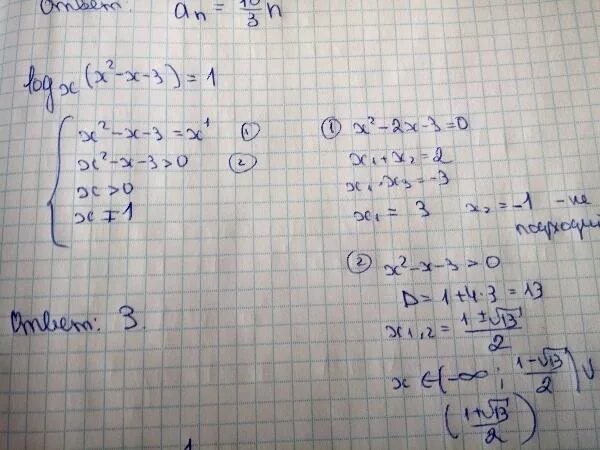 Ответ: aₙ = 10/3 n
logₓ(x²-x-3) = 1
x²-x-3 = x¹ ①
x²-x-3>0 ②
x>0
x≠1
Ответ: 3.
① x²-2x-3=0
x₁+x₂=2
x₁·x₂=-3
x₁ = 3 x₂ = -1 - не
подходит
② x²-x-3>0
D = 1+4·3 = 13
x₁,₂ = (1±√13)/2
x ∈ (-∞; (1-√13)/2) ∪
((1+√13)/2)